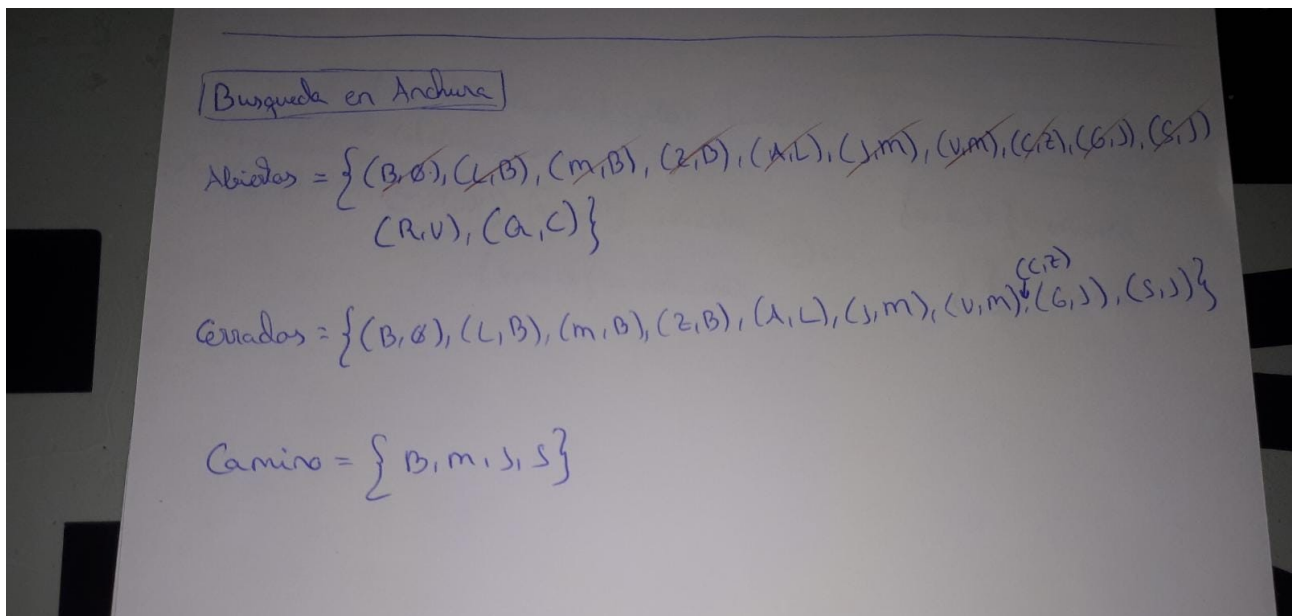 Busqueda en Anchura
Abiertas = {(B,ø), (L,B), (M,B), (Z,B), (A,L), (J,M), (V,M), (C,Z), (G,J), (S,J)
(R,V), (Q,C)}
(C,Z)
Cerradas = {(B,ø), (L,B), (M,B), (Z,B), (A,L), (J,M), (V,M), (G,J), (S,J)}
Camino = {B, M, J, S}